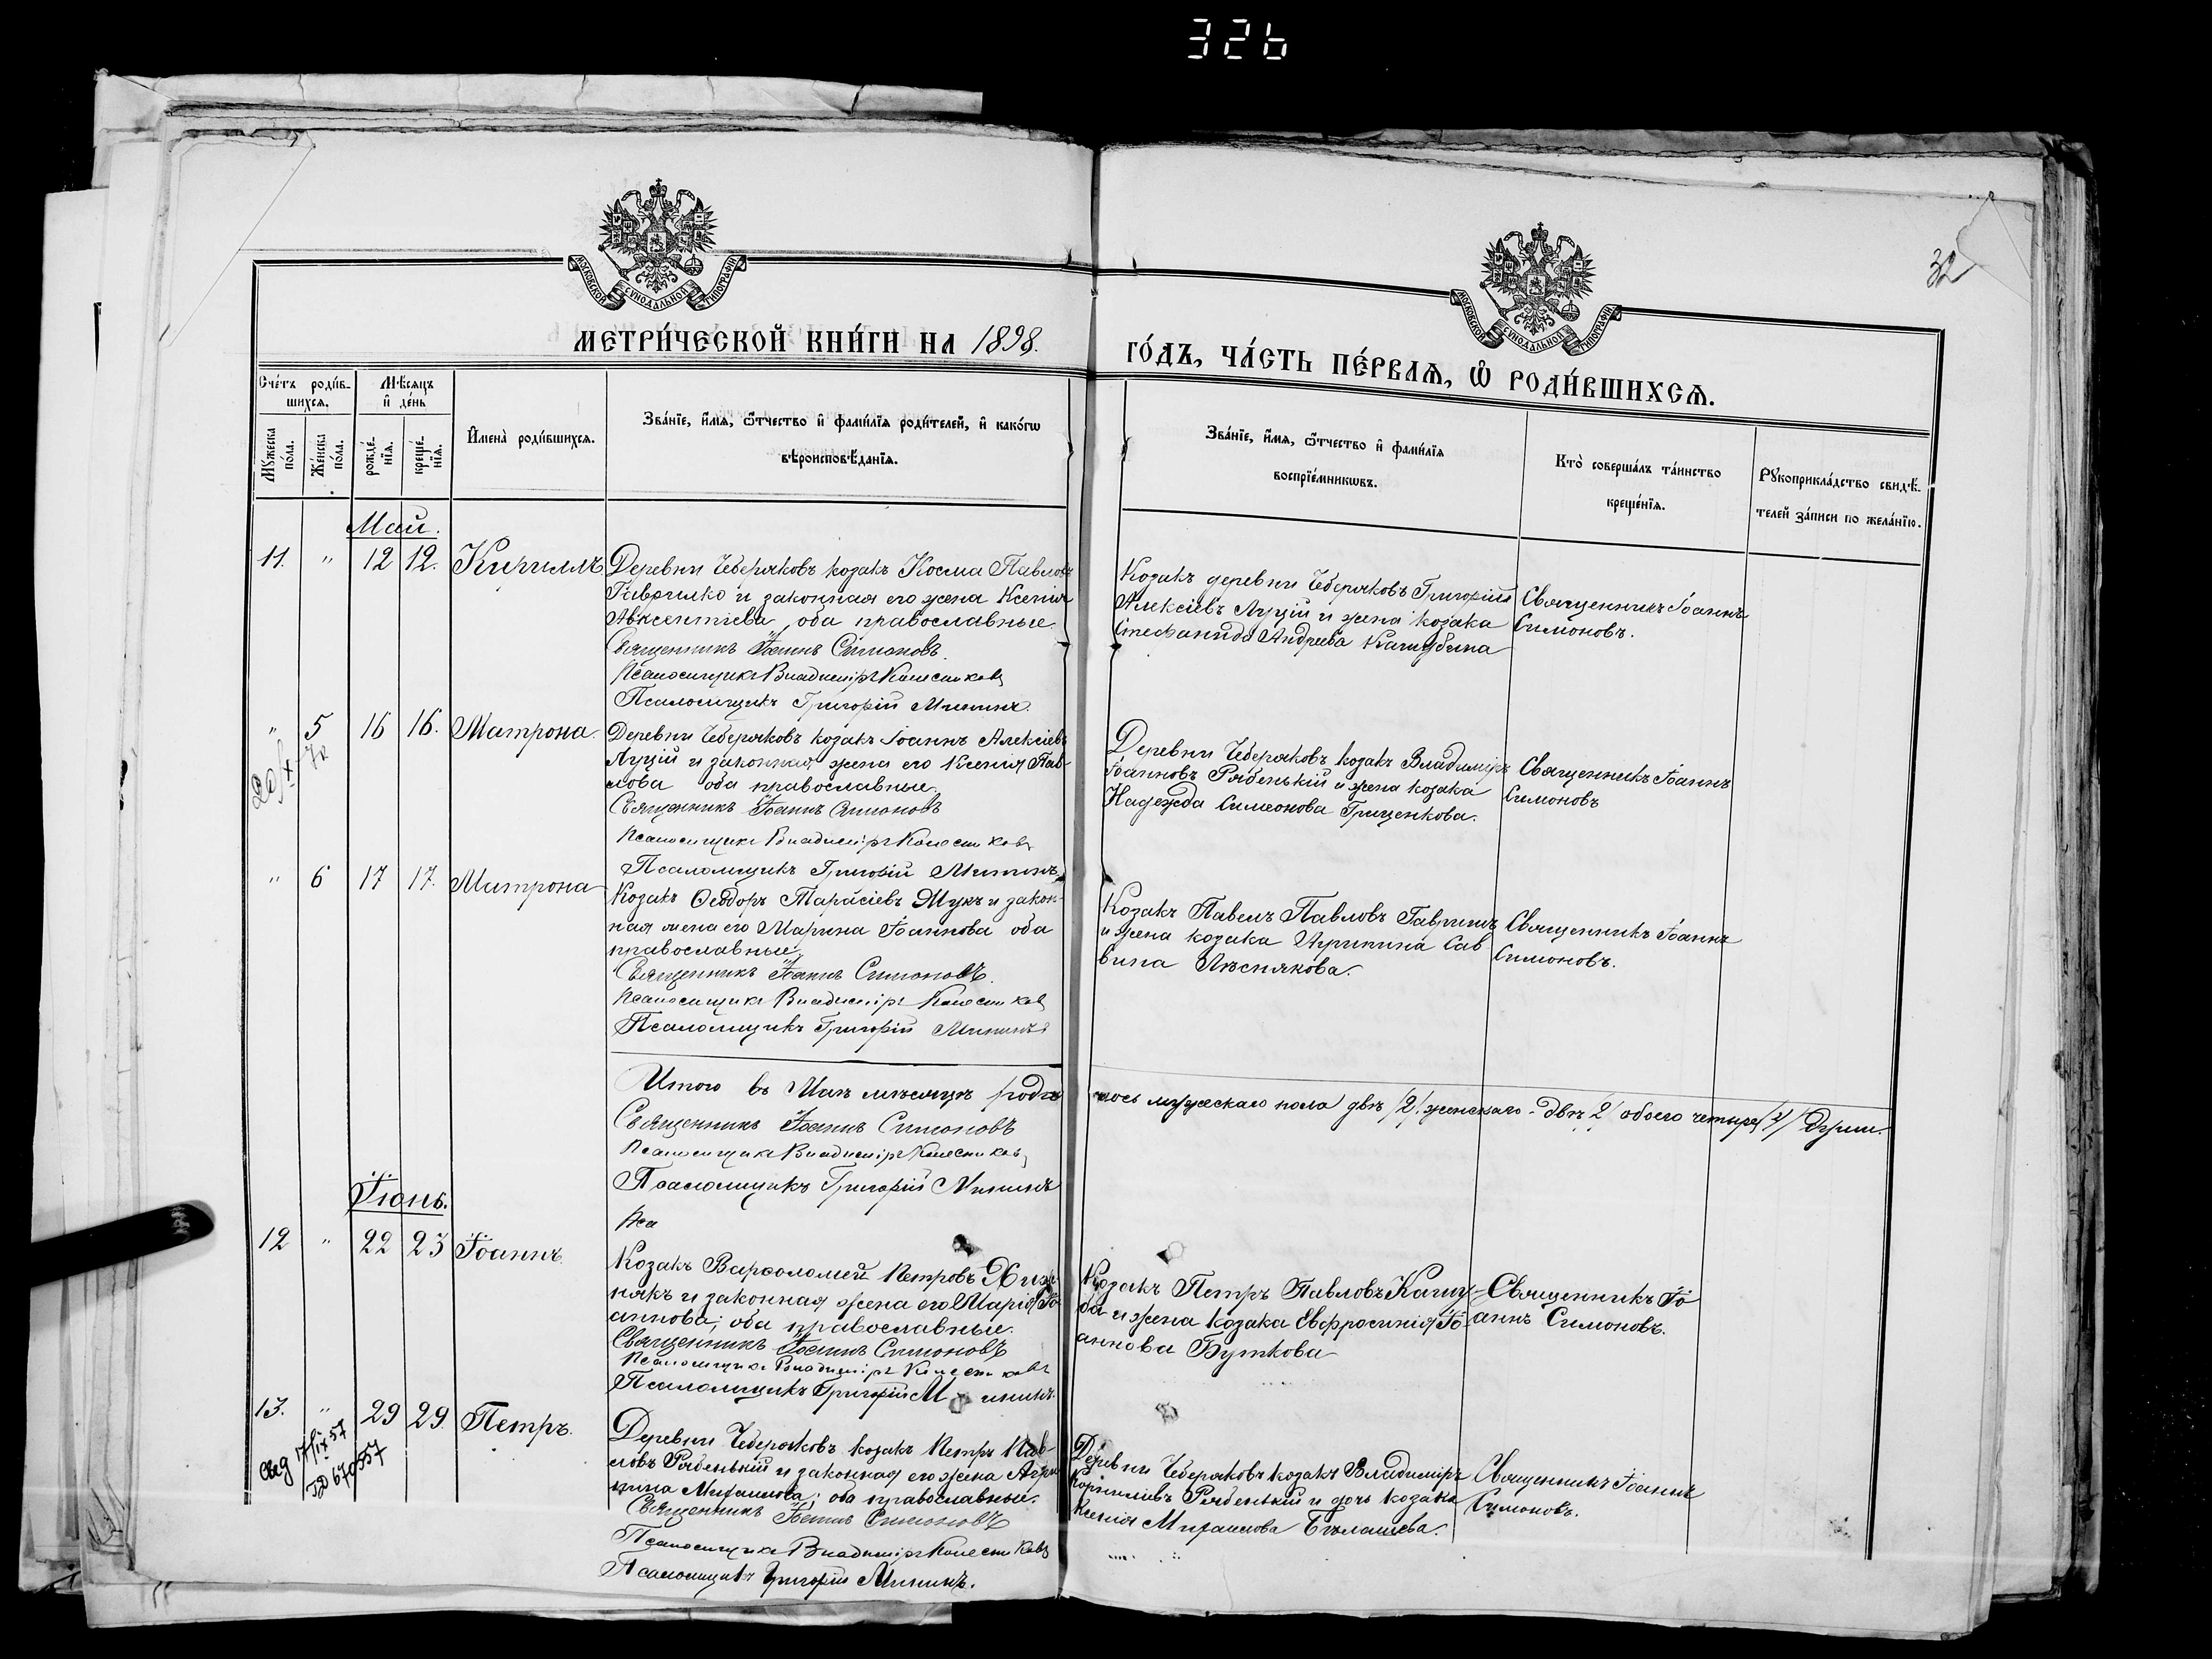 326
32
МОСКОВСКОЙ СУНОДАЛЬНОЙ ТИПОГРАФІИ
МОСКОВСКОЙ СУНОДАЛЬНОЙ ТИПОГРАФІИ
МЕТРИ́ЧЕСКОЙ КНИ́ГИ НА 1898.
ГО́ДЪ, ЧА́СТЬ ПЕ́РВАѦ, Ѡ҆ РОДИ́ВШИХСѦ.
Сче́тъ роди́в-
шихсѧ.
Мꙋ́жеска
по́ла.
Же́нска
по́ла.
Мѣ́сѧцъ
и҆ де́нь
рожде́-
нїѧ.
креще́-
нїѧ.
И҆мена̀ роди́вшихсѧ.
Зва́нїе, и҆́мѧ, ѻ҆́тчество и҆ фами́лїѧ роди́телей, и҆ како́гѡ
вѣроисповѣ́данїѧ.
Зва́нїе, и҆́мѧ, ѻ҆́тчество и҆ фами́лїѧ
воспрїе́мникѡвъ.
Кто̀ соверша́лъ та́инство
креще́нїѧ.
Рꙋкоприкла́дство свидѣ́-
телей за́писи по жела́нїю.
Май.
11. " 12 12. Кириллъ
Деревни Чеберяковъ козакъ Косма Павловъ
Гаврилко и законная его жена Ксенія
Авксентіева, оба православные.
Священникъ Іоаннъ Симоновъ.
Псаломщикъ Владиміръ Колесниковъ
Псаломщикъ Григорій Мининъ.
Козакъ деревни Чеберяковъ Григорій
Алексіевъ Луцій и жена козака
Стефанида Андреева
Священникъ Іоаннъ
Симоновъ.
" 5 16 16. Матрона.
Деревни Чеберяковъ козакъ Іоаннъ Алексіевъ
Луцій и законная жена его Ксенія Пав-
лова оба православные.
Священникъ Іоаннъ Симоновъ
Псаломщикъ Владиміръ Колесниковъ
Псаломщикъ Григорій Мининъ.
Деревни Чеберяковъ козакъ Владиміръ
Іоанновъ Рябенькій и жена козака
Надежда Симеонова Гриценкова.
Священникъ Іоаннъ
Симоновъ
" 6 17 17. Матрона
Козакъ Ѳеодоръ Тарасіевъ Жукъ и закон-
ная жена его Марина Іоаннова оба
православные.
Священникъ Іоаннъ Симоновъ.
Псаломщикъ Владиміръ Колесниковъ
Псаломщикъ Григорій Мининъ
Козакъ Павелъ Павловъ
и жена козака Агрипина Сав-
вина Лѣснякова.
Священникъ Іоаннъ
Симоновъ.
Итого въ Маѣ мѣсяцѣ роди-
лось мужескаго пола двѣ /2/ женскаго - двѣ 2/ обоего четыре /4/ души.
Священникъ Іоаннъ Симоновъ
Псаломщикъ Владиміръ Колесниковъ
Псаломщикъ Григорій Мининъ
Іюнь.
Пса
12 " 22 23 Іоаннъ.
Козакъ Варѳоломей Петровъ Хиж-
някъ и законная жена его Марія Іо-
аннова; оба православные.
Священникъ Іоаннъ Симоновъ
Псаломщикъ Владиміръ Колесниковъ
Псаломщикъ Григорій Мининъ.
Козакъ Петръ Павловъ Кашу-
ба и жена козака Евфросинія Іо-
аннова Буткова
Священникъ Іо-
аннъ Симоновъ.
13. " 29 29. Петръ.
17/IX 57
Деревни Чеберяковъ козакъ Петръ Пав-
ловъ Рябенькій и законная его жена Агри-
пина Михаилова; оба православные.
Священникъ Іоаннъ Симоновъ
Псаломщикъ Владиміръ Колесниковъ
Псаломщикъ Григорій Мининъ.
Деревни Чеберяковъ козакъ Владиміръ
Корниліевъ Рябенькій и дочь козака
Ксенія Михаилова
Священникъ Іоаннъ
Симоновъ.